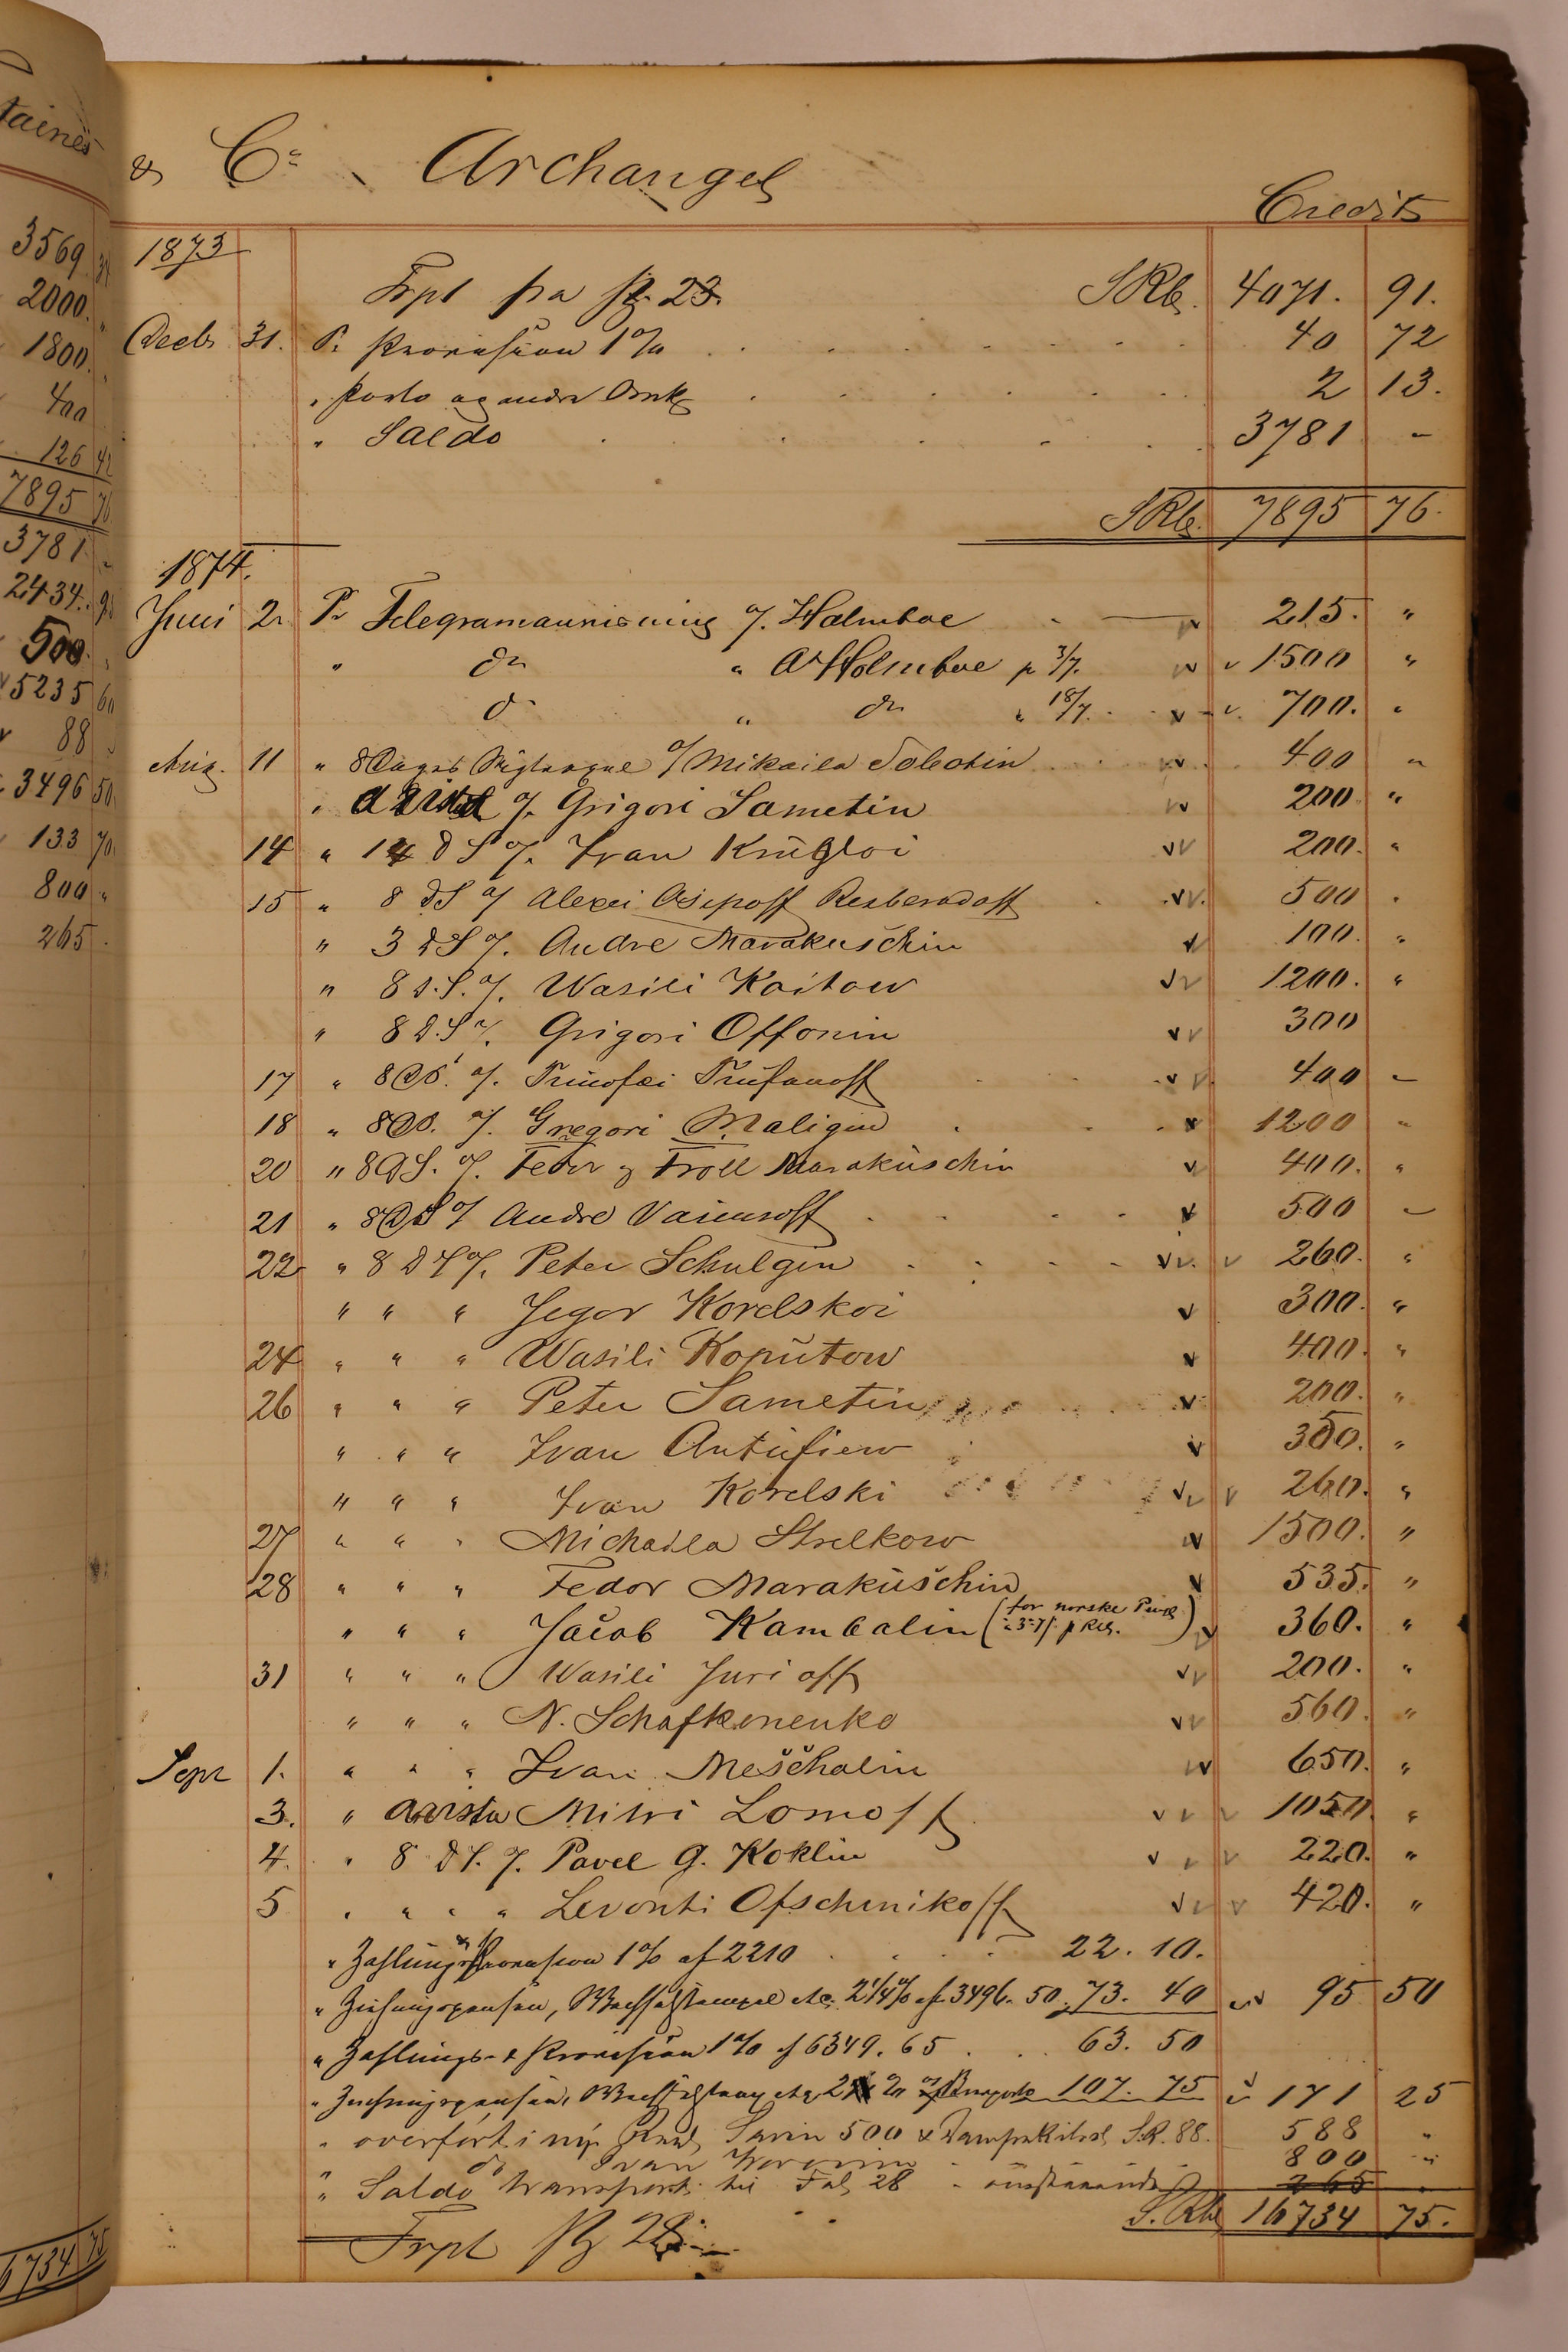 taines
3569
2000.
1800.
400
126 42
7895 76
3781
2434.
500.
5235 60
88
3496 50
133 70
800 "
265.
6734 75
& Co Archangel
Credit
1873
Frpt fra Pg. 23. SRb. 4071. 91.
Decb 31. Pr Provision 1% 40 72
" Porto og andre Omk 2 13.
" Saldo 3781 -
SRb. 7895 76.
1874.
Juni 2 Pr Telegramanvisning o/. Holmboe 215. "
" do " A Holmboe p 3/7. 1500 "
do " do " 18/7. 700. "
Aug. 11 " 8 Dages o/ Mikaila Sobotin 400 "
" o/. Grigori Sametin 200 "
14 " 14 d S o/. Ivan Krügloi 200. "
15 " 8 dS o/ Alexei Osipoff 500 .
" 3 dS o/. Andre Marakuschin 100. "
" 8 d.S. o/. Wasili Kaitow 1200. "
" 8 d.S o/. Grigori Offonin 300
17 " 8 DS. o/. Timofei Trüfanoff 400 -
18 " 8 DS. o/. Gregori Maligin 1200 "
20 " 8 DS. o/. Fedor & Froll Maraküschin 400. "
21 " 8 DS o/ Andre 500 -
22 " 8 D S o/. Peter Schulgin 260. "
" " " Jegor Korelskoi 300. "
24 " " " Wasili Koputow 400. "
26 " " " Peter Sametin 200. "
" " " Ivan Antüfiew 350. "
" " " Ivan Korelski 260. "
27 " " " Michaila Strelkow 1500. "
28 " " " Fedor Maraküschin 535. "
" " " Jacob Kambalin (for norske p Rub.) 360. "
31 " " " Wasili Jurioff 200. "
" " " N. Schafkonenko 560. "
Sepr 1. " " " Ivan Meščhalin 650. "
3. " Mitri Lomoff 1050. "
4. " 8 dS. o/. Pavel G. Koklin 220. "
5 " " " " Levonti Ofschinikoff 420. "
" Zahlungs Provision 1% af 2210 22. 10.
" Ziehungsspesen, Wechselstempel etc. 2 1/4% af 3496. 50. 73. 40 95 50
" Zahlungs- & Provision 1% af 6349. 65 63. 50
" Ziehungsspesen, 107. 75 171 25
" overfört i ny Savin 500 & S.R. 88. 588 "
do Ivan Woronin 800 "
" Saldo transport til Fol 28 265 .
S. Rb 16734 75.
Frpt Pg 28.